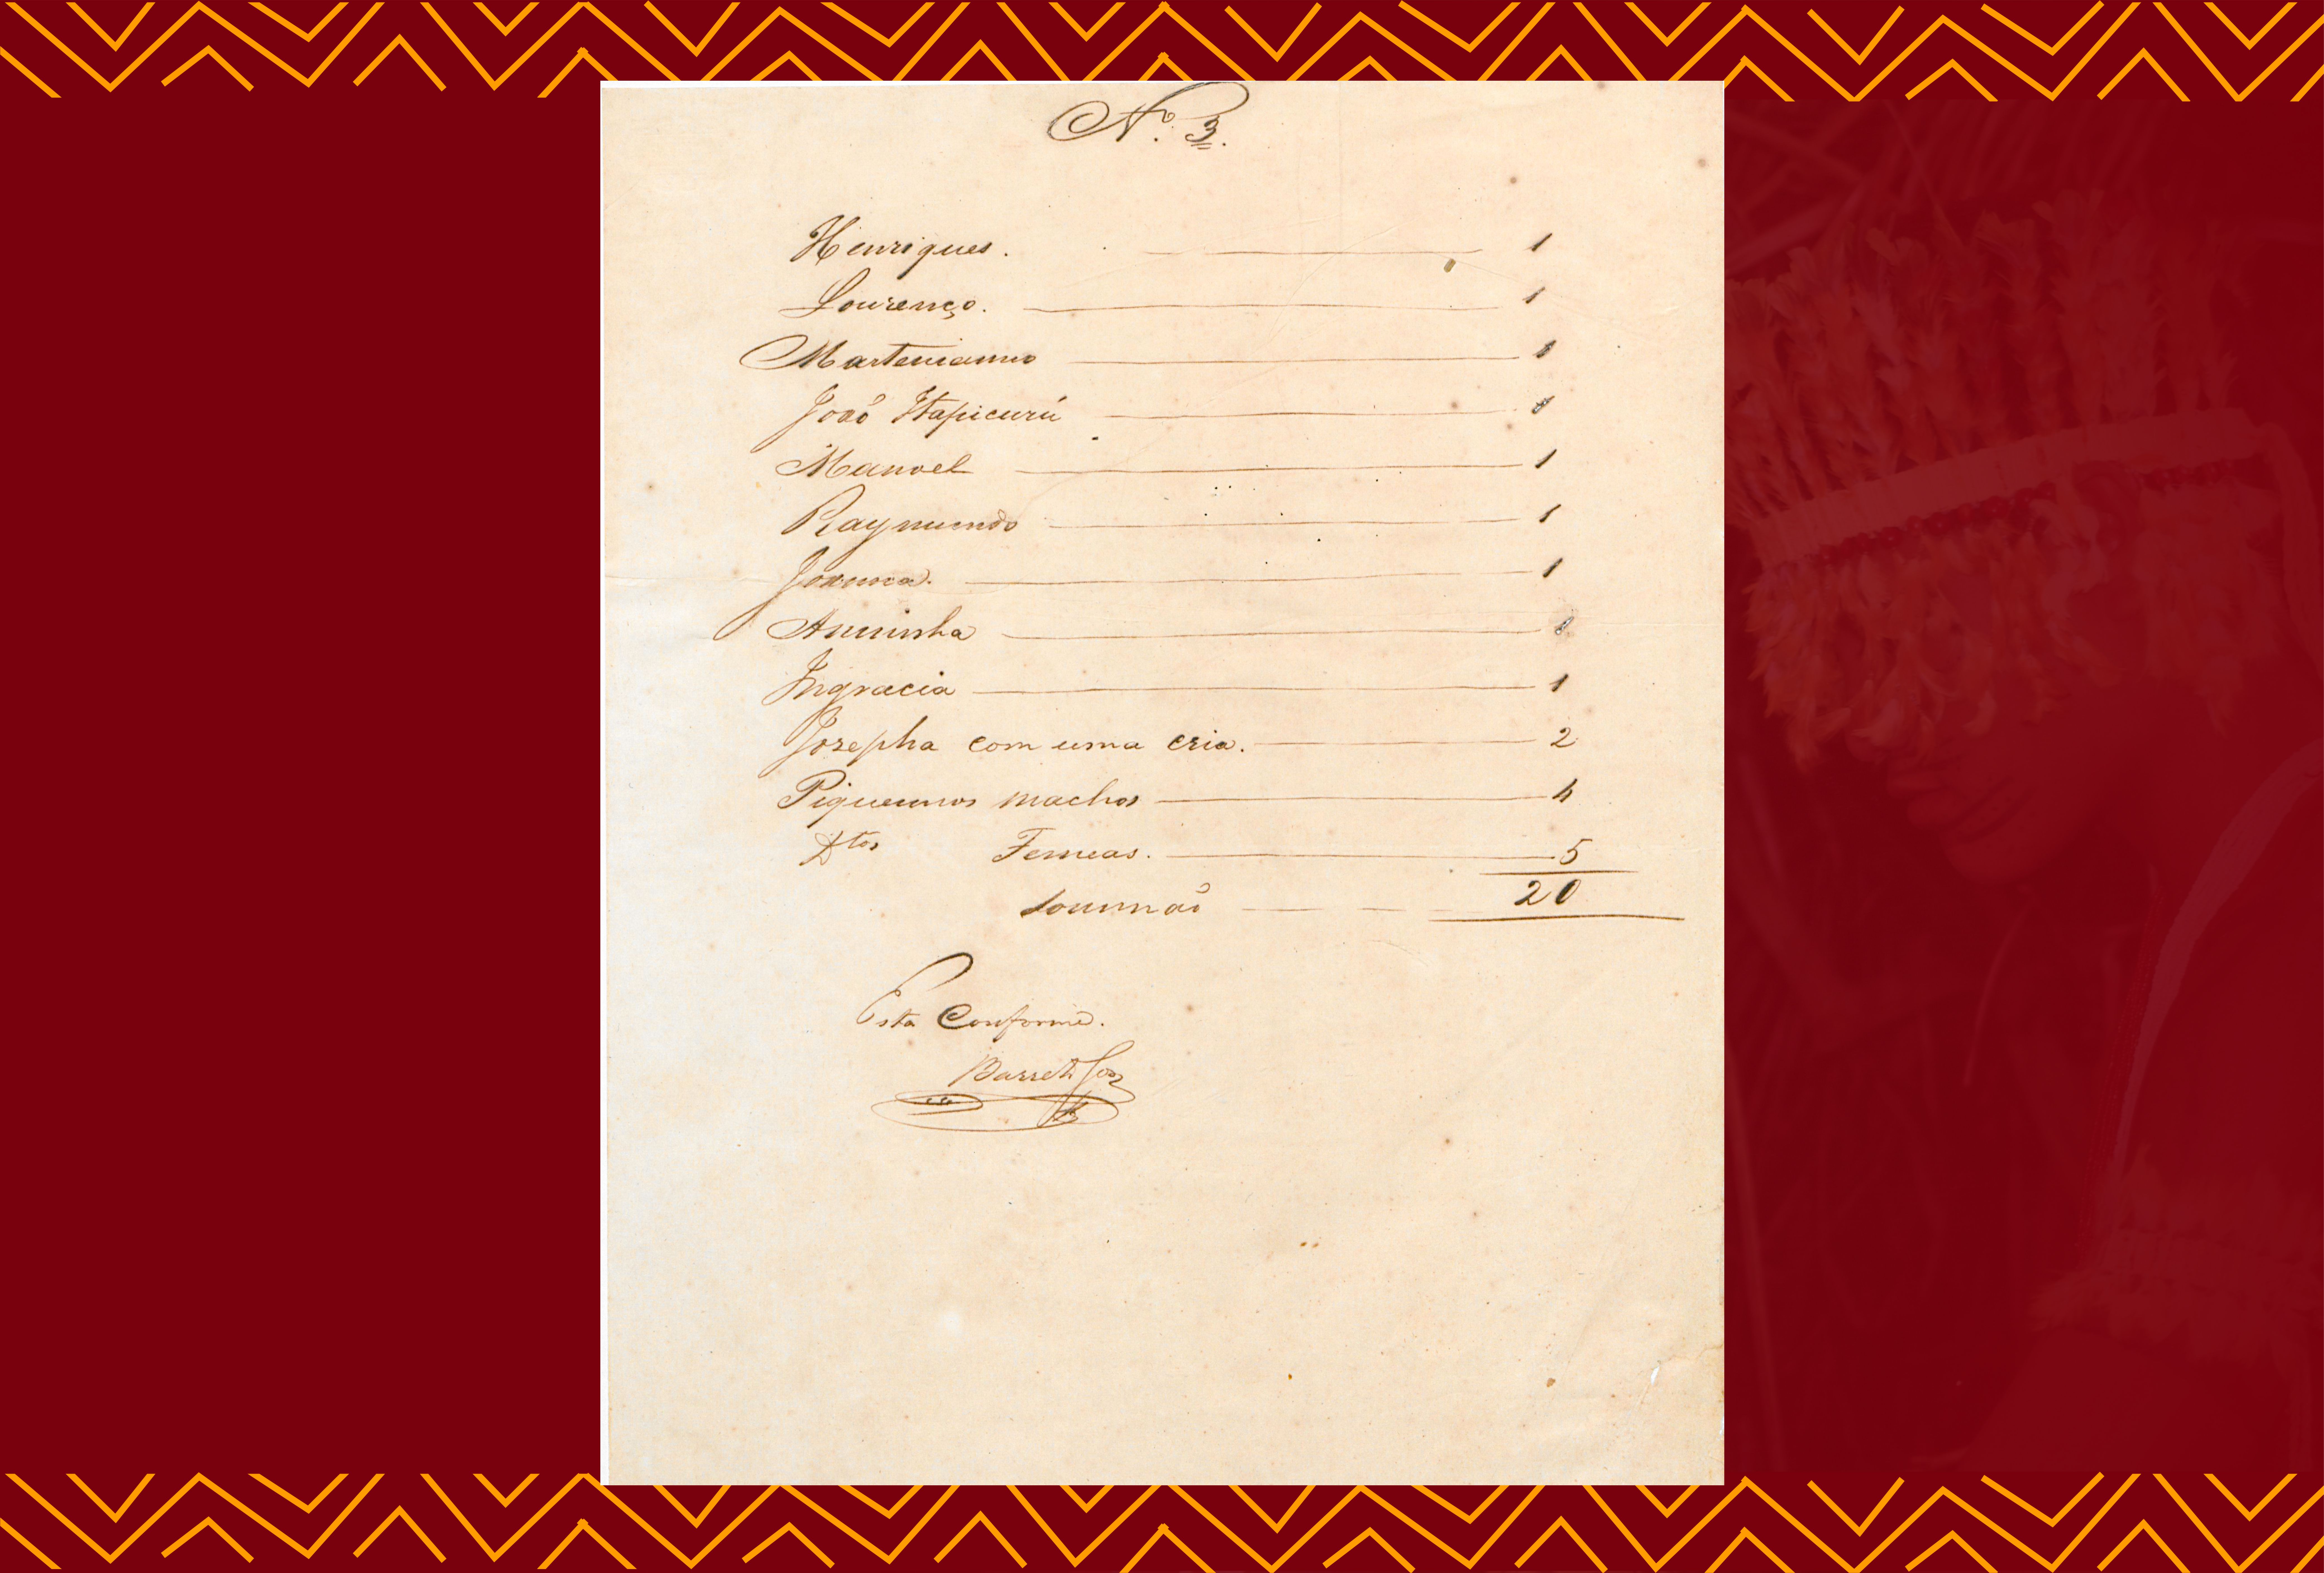 Nº. 3.
Henriques. 1
Lourenço. 1
Martenianno 1
João Itapicurú 1
Manoel 1
Raymundo 1
1
Anninha 1
Ingracia 1
Josepha com uma cria. 2
Piquennos machos 4
Dtos Femeas. 5
Soummaõ 20
Esta Conforme.